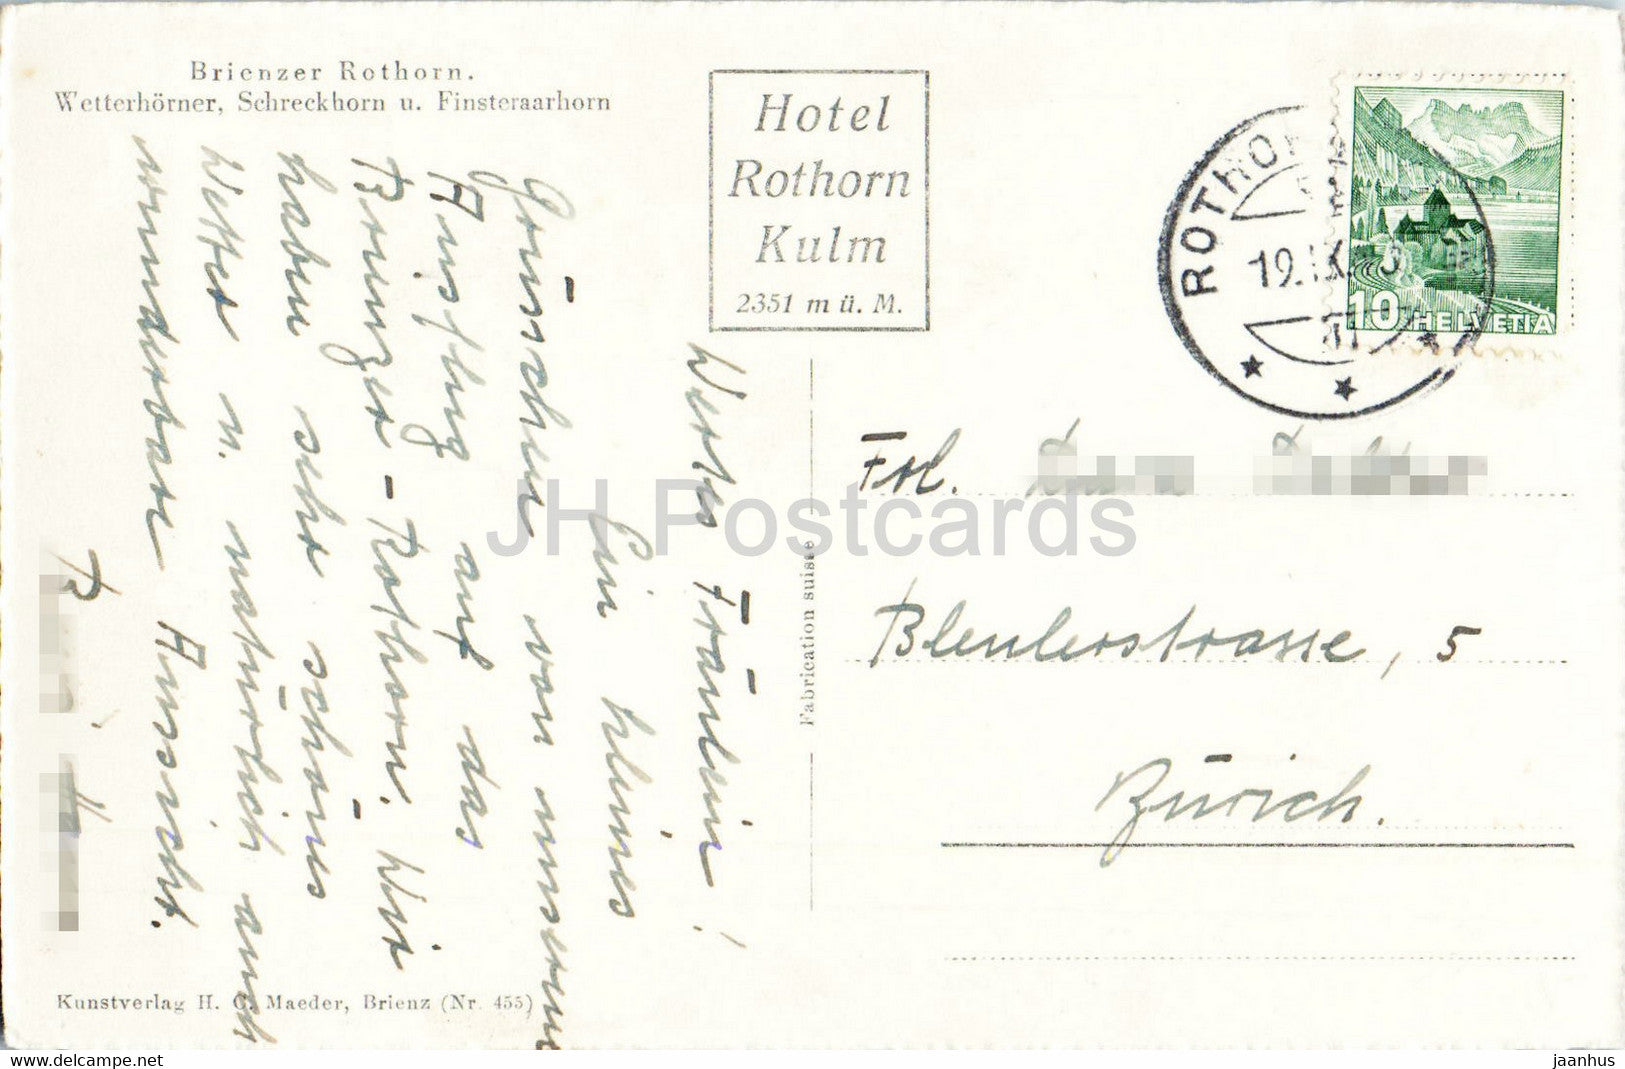 Brienzer Rothorn.
Wetterhörner, Schreckhorn u. Finsteraarhorn
Hotel
Rothorn
Kulm
2351 m ü. M.
ROTHO
19.IX.
10 HELVETIA
Wertes Fräulein!
Ein kleines
Grüsschen von unserem
Ausflug auf das
Brienzer-Rothorn. Wir
haben sehr schönes
Wetter u. natürlich auch
wunderbare Aussicht.
Fabrication suisse
Frl.
Bleulerstrasse, 5
Zürich.
Kunstverlag H. C. Maeder, Brienz (Nr. 455)
JH Postcards
jh-postcards.delcampe.net
jaanhus